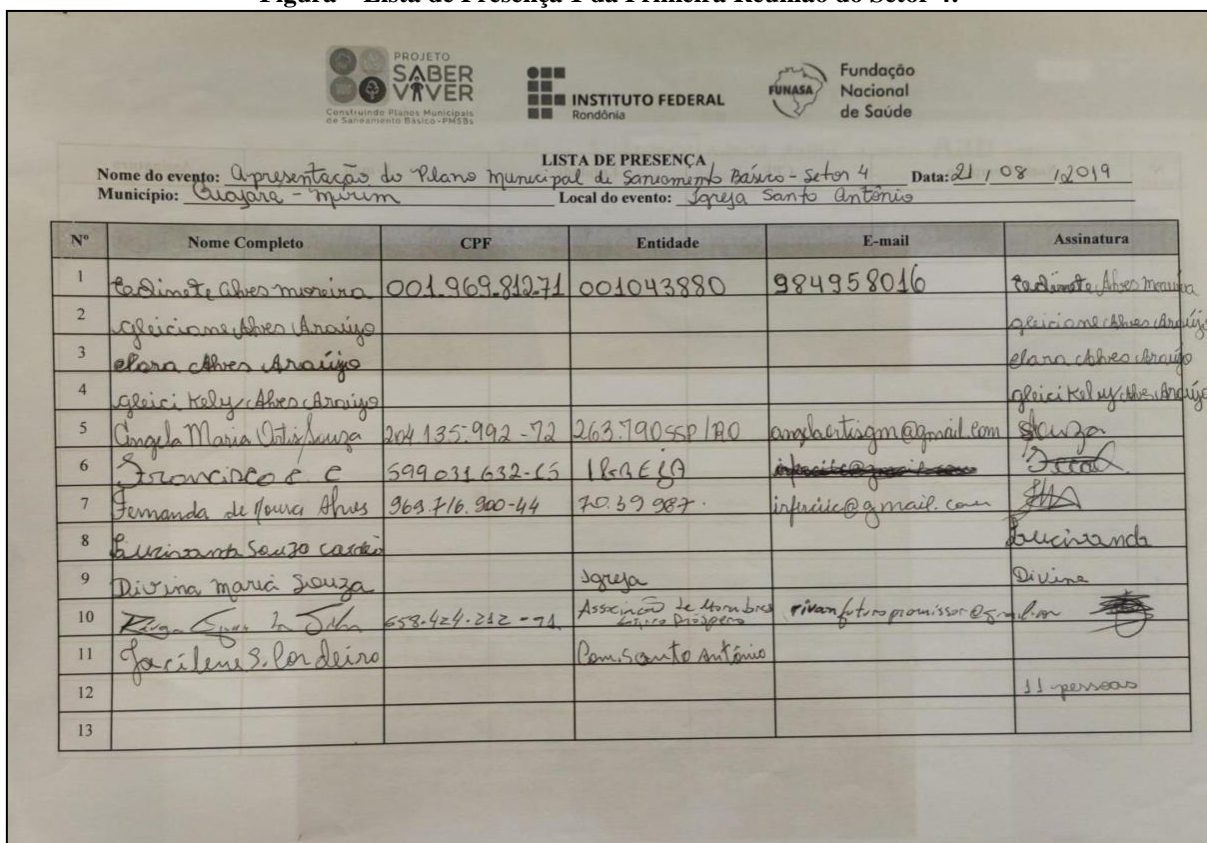 Figura – Lista de Presença 1 da Primeira Reunião do Setor 4.
PROJETO
SABER
VIVER
Construindo Planos Municipais
de Saneamento Básico - PMSBs
INSTITUTO FEDERAL
Rondônia
FUNASA
Fundação
Nacional
de Saúde
LISTA DE PRESENÇA
Nome do evento: Apresentação do Plano Municipal de Saneamento Básico - Setor 4 Data: 21 / 08 / 2019
Município: Guajará - Mirim Local do evento: Igreja Santo Antônio
Nº Nome Completo CPF Entidade E-mail Assinatura
1 Alves moreira 001.969.812.71 001043880 984958016 Alves Moreira
2 gleiciane Alves Araújo gleiciane Alves Araújo
3 elana Alves Araújo elana Alves Araújo
4 gleici Kely Alves Araújo gleici Kely Alves Araújo
5 Angela Maria Ortis Souza 204 135.992-72 263.790 SSP/RO Souza
6 Francisco 599 031 632-15 IGREJA
7 Fernanda de Moura Alves 969.716.900-44 7039987.
8 Lucivanda Souza Lucivanda
9 Divina maria Souza Igreja Divina
10 da Silva 658.424.212-71 Associação de
11 Jacilene S. Cordeiro Com. Santo Antônio
12 11 pessoas
13